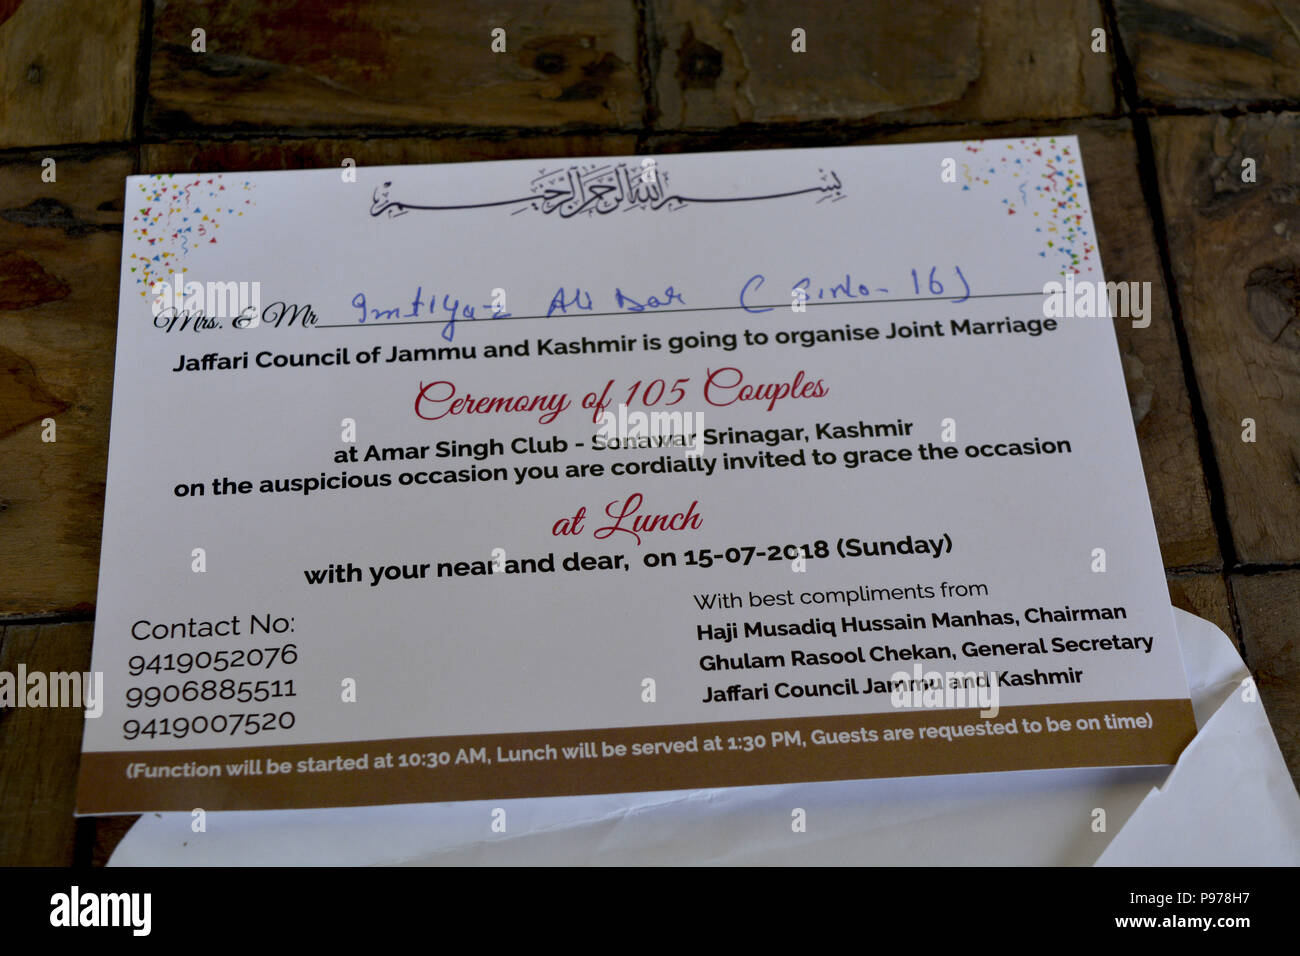 بسم الله الرحمن الرحيم
Mrs. & Mr Imtiyaz Ali Dar
Jaffari Council of Jammu and Kashmir is going to organise Joint Marriage
Ceremony of 105 Couples
at Amar Singh Club - Sonawar Srinagar, Kashmir
on the auspicious occasion you are cordially invited to grace the occasion
at Lunch
with your near and dear, on 15-07-2018 (Sunday)
Contact No:
9419052076
9906885511
9419007520
With best compliments from
Haji Musadiq Hussain Manhas, Chairman
Ghulam Rasool Chekan, General Secretary
Jaffari Council Jammu and Kashmir
(Function will be started at 10:30 AM, Lunch will be served at 1:30 PM, Guests are requested to be on time)
alamy
Image ID: P978H7
www.alamy.com